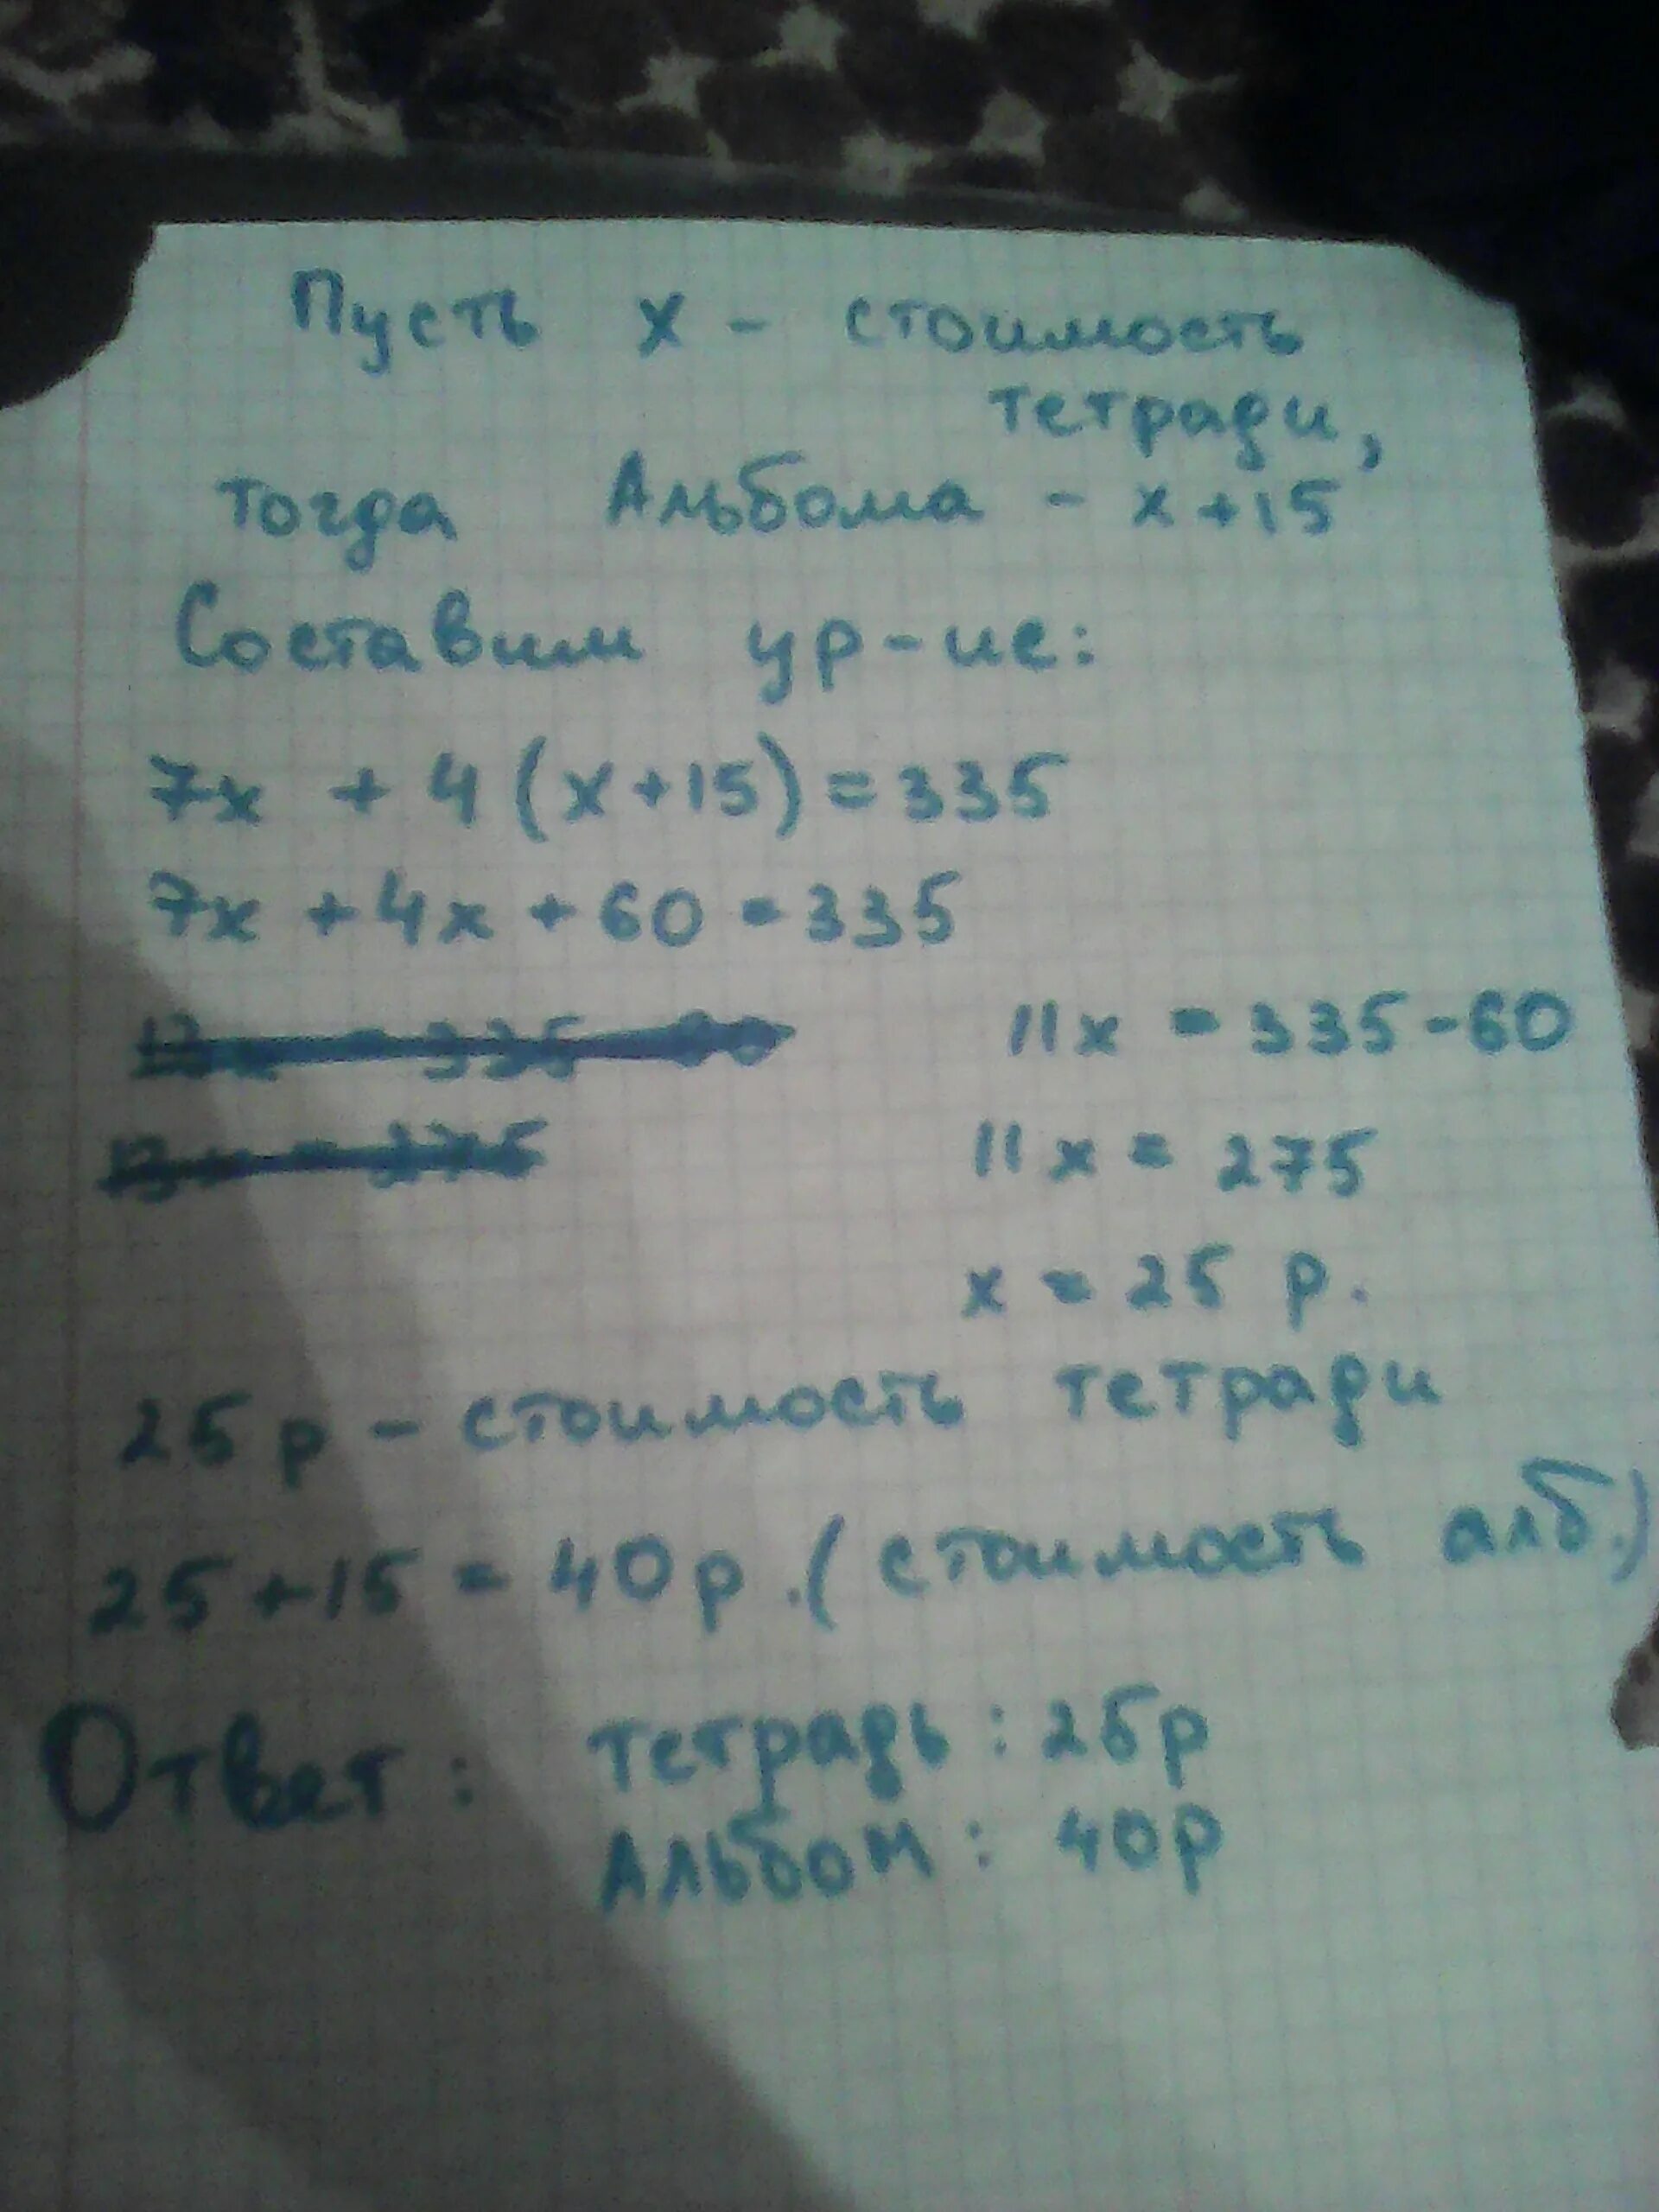 Пусть x - стоимость
тетради,
тогда Альбома - x+15
Составим ур-ие:
7x + 4(x+15)=335
7x + 4x + 60 = 335
11x = 335-60
11x = 275
x = 25 р.
25р - стоимость тетради
25+15 = 40р. (стоимость алб.)
Ответ: тетрадь: 25р
Альбом: 40р